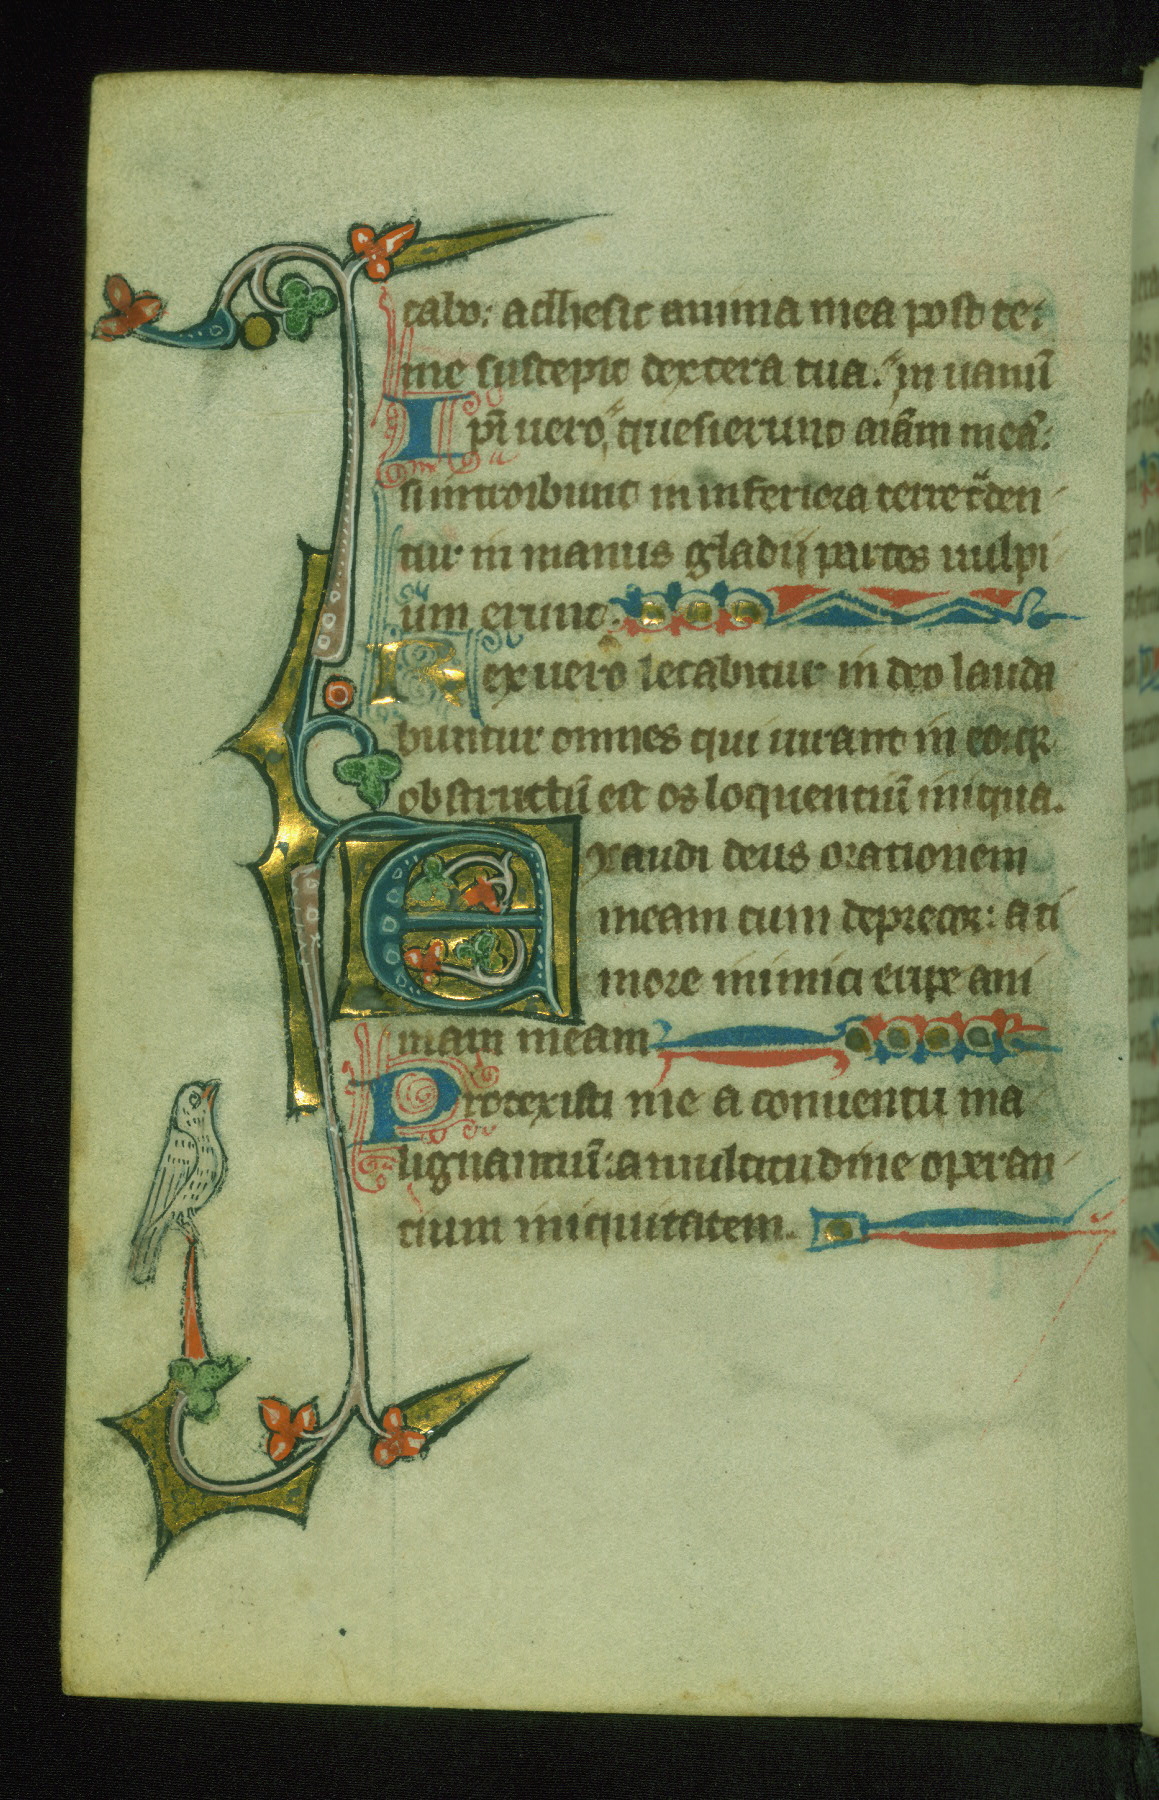 tabo: adhesit anima mea post te:
me suscepit dextera tua. in uanū
Ipi̅ uero, quesierunt ai̅am mea̅:
si introibunt in inferiora terre t̃den
tur in manus gladij partes uulpi
um erunt.
Rex uero letabitur in deo lauda
buntur omnes qui iurant in eo: qr
obstructū est os loquentiū iniqua.
Exaudi deus orationem
meam cum deprecor: a ti
more inimici eripe ani
mam meam
Protexisti me a conuentu ma
lignantiū: a multitudine operan
tium iniquitatem.